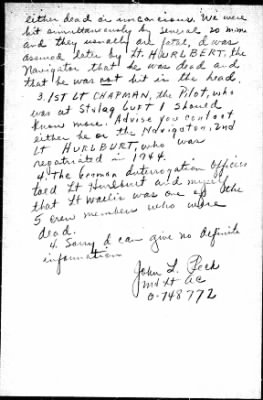 either dead or unconcious. We were
hit simultaneously by several 20 mms
and they usually are fatal, I was
assured later by Lt. HURLBERT, the
Navigator that he was dead and
that he was not hit in the head.
3. 1ST LT CHAPMAN, the Pilot, who
was at Stalag LUFT I should
know more. Advise you contact
either he or the Navigator, 2nd
Lt HURLBURT, who was
repatriated in 1944.
4. The German Interrogation Officers
told Lt Hurlburt and myself
that Lt was one of the
5 crew members who were
dead.
4. Sorry I can give no definite
information
John L. Peck
2nd Lt AC
O-748772